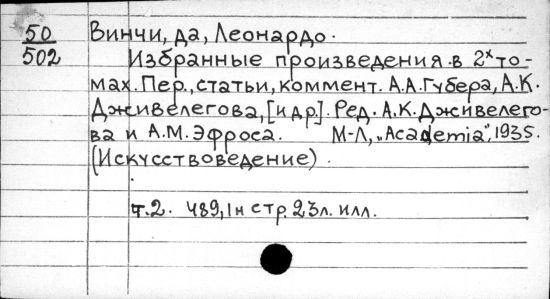 50 Винчи, да, Леонардо.
502 Избранные произведения в 2х то-
мах. Пер., статьи, коммент. А.А.Губера, А.К.
Дживелегова, [и др.]. Ред. А.К.Дживелего-
ва и А.М.Эфроса. М-Л, „Academia", 1935.
(Искусствоведение)
т.2. 489, 1н стр. 23л. илл.